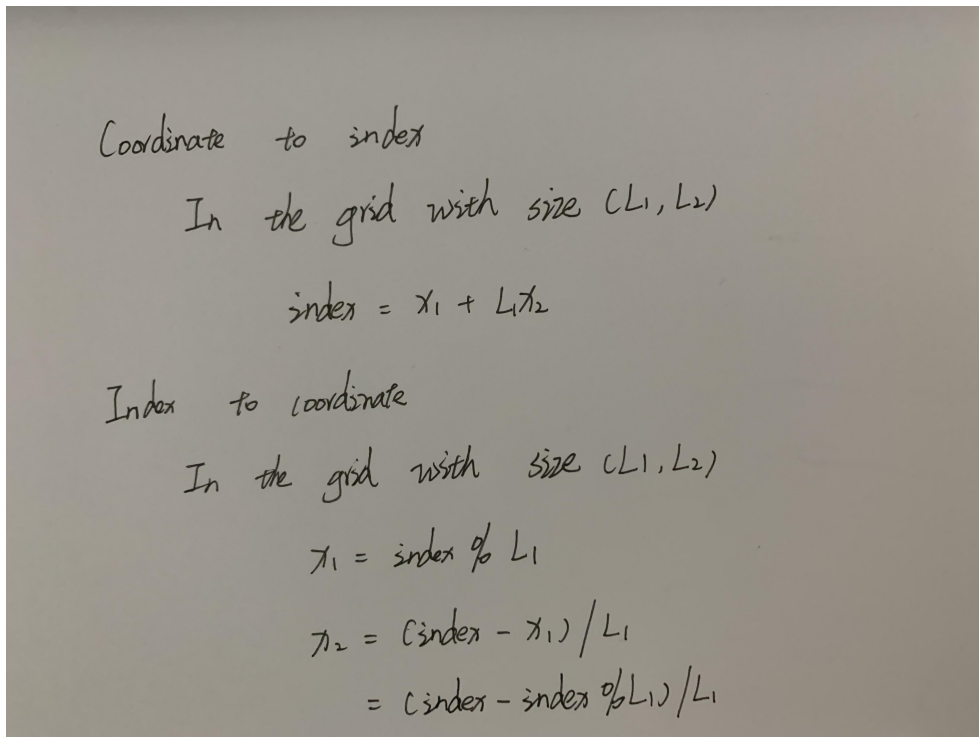 Coordinate to index
In the grid with size (L₁, L₂)
index = x₁ + L₁x₂
Index to coordinate
In the grid with size (L₁, L₂)
x₁ = index % L₁
x₂ = (index - x₁) / L₁
= (index - index % L₁) / L₁